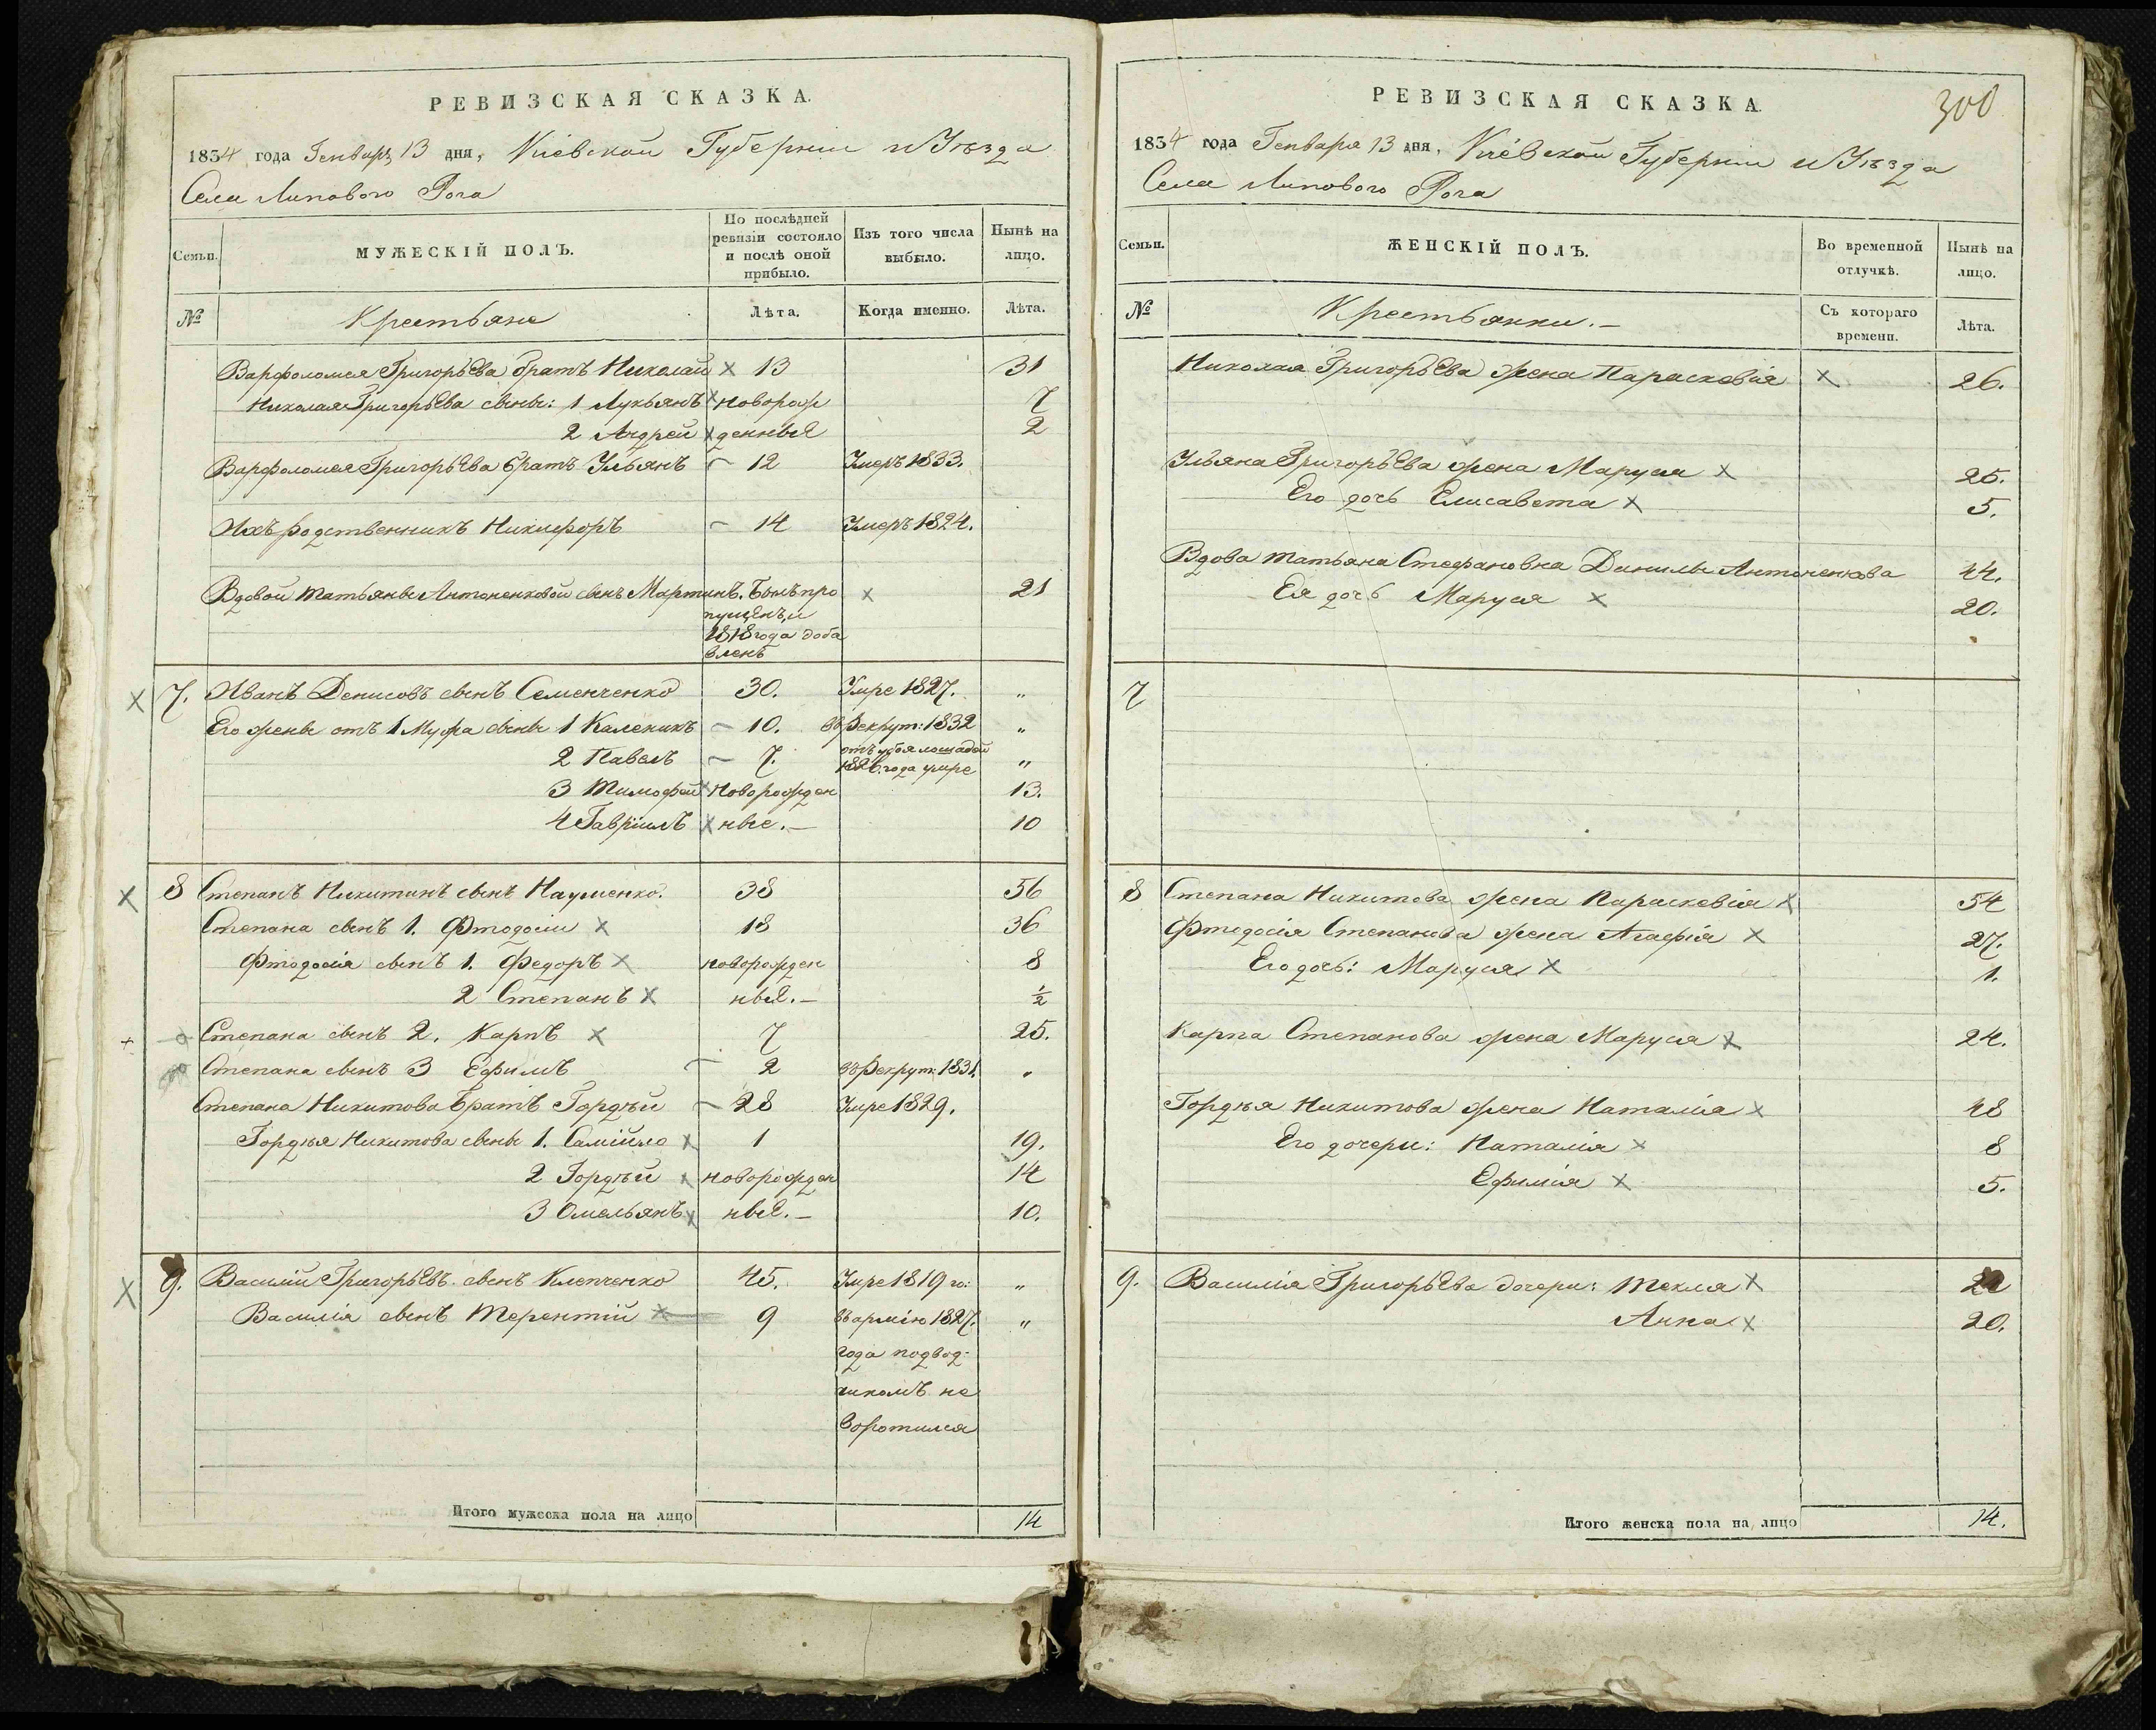 РЕВИЗСКАЯ СКАЗКА.
1834 года Генваря 13 дня, Кіевской Губерніи и Уѣзда
Села Липового Рога
Семьи.
МУЖЕСКІЙ ПОЛЪ.
По послѣдней ревизіи состояло и послѣ оной прибыло.
Изъ того числа выбыло.
Нынѣ на лицо.
№
Крестьяне
Лѣта.
Когда именно.
Лѣта.
Варфоломея Григорьева братъ Николай х 13 31
Николая Григорьева сыны: 1 Лукьянъ х новорож 7
2 Андрей х денныe 2
Варфоломея Григорьева братъ Ульянъ – 12 Умеръ 1833.
Ихъ родственникъ Никифоръ – 14 Умеръ 1824.
Вдовой Татьяны Антоненковой сынъ Мартинъ. Былъ про х 21
пущенъ, и
1818 года доба
вленъ
х 7. Иванъ Денисовъ сынъ Семенченко 30. Умре 1827. "
Его жены отъ 1 Мужа сыны 1 Каленикъ – 10. въ Рекрут: 1832 "
2 Павелъ – 7. отъ убоя лошадей "
1826 года умре
3 Тимофей х Новорожден 13.
4 Гавріилъ х ные. – 10
х 8 Степанъ Никитинъ сынъ Науменко. 38 56
Степана сынъ 1. Фтодосій х 18 36
Фтодосія сынъ 1. Федоръ х новорожден 8
2 Степанъ х ные. – ½
+ Степана сынъ 2. Карпъ х 7 25.
Степана сынъ 3 Ефимъ – 2 въ Рекрут: 1831. "
Степана Никитова братъ Гордѣй – 28 Умре 1829.
Гордѣя Никитова сыны 1. Самійло х 1 19.
2 Гордѣй х новорожден 14
3 Омельянъ х ные. – 10.
х 9. Василій Григорьевъ сынъ Клепченко 45. Умре 1819 го: "
Василія сынъ Терентій х 9 въ армію 1827. "
года подвод-
чикомъ не
воротился
Итого мужеска пола на лицо 14
РЕВИЗСКАЯ СКАЗКА.
300
1834 года Генваря 13 дня, Кіевской Губерніи и Уѣзда
Села Липового Рога
Семьи.
ЖЕНСКІЙ ПОЛЪ.
Во временной отлучкѣ.
Нынѣ на лицо.
№
Крестьянки. –
Съ котораго времени.
Лѣта.
Николая Григорьева жена Парасковія х 26.
Ульяна Григорьева жена Маруся х 25.
Его дочь Елисавета х 5.
Вдова Татьяна Стефановна Данилы Антоненкова 44.
Ея дочь Маруся х 20.
7
8 Степана Никитова жена Параскевія х 54
Фтодосія Степанова жена Агафія х 27.
Его дочь: Маруся х 1.
Карпа Степанова жена Маруся х 24.
Гордѣя Никитова жена Наталія х 48
Его дочери: Наталія х 8
Ефимія х 5.
9. Василія Григорьева дочери: Текля х
Анна х 20.
Итого женска пола на лицо 14.